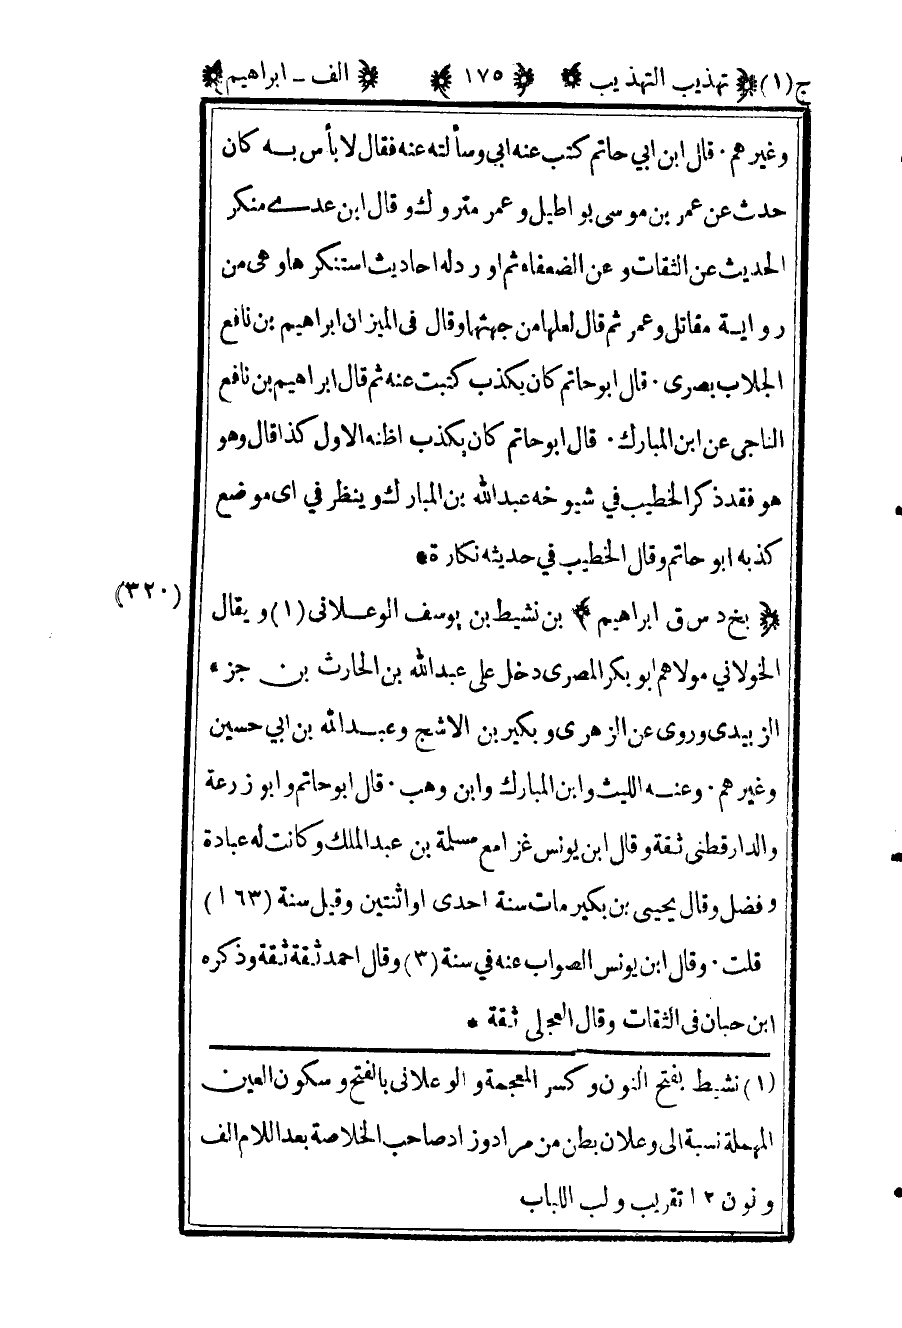 ج (١) ﴿ تهذيب التهذيب ﴾ ﴿ ١٧٥ ﴾ ﴿ الف - ابراهيم ﴾
وغيرهم · قال ابن ابي حاتم كتب عنه ابي وسألته عنه فقال لا بأس به كان
حدث عن عمر بن موسى بواطيل وعمر متروك وقال ابن عدى منكر
الحديث عن الثقات وعن الضعفاء ثم اورد له احاديث استنكرها وهى من
رواية مقاتل وعمر ثم قال لعلها من جهتها وقال فى الميزان ابراهيم بن نافع
الجلاب بصرى · قال ابو حاتم كان يكذب كتبت عنه ثم قال ابراهيم بن نافع
الناجى عن ابن المبارك · قال ابو حاتم كان يكذب اظنه الاول كذا قال وهو
هو فقد ذكر الخطيب في شيوخه عبد الله بن المبارك وينظر في اى موضع
كذبه ابو حاتم وقال الخطيب في حديثه نكارة *
(٣٢٠)
﴿ بخ د س ق ابراهيم ﴾ بن نشيط بن يوسف الوعلانى (١) ويقال
الخولاني مولاهم ابو بكر المصرى دخل على عبد الله بن الحارث بن جزء
الزبيدى وروى عن الزهرى وبكير بن الاشج وعبد الله بن ابي حسين
وغيرهم · وعنه الليث وابن المبارك وابن وهب · قال ابو حاتم وابو زرعة
والدارقطنى ثقة وقال ابن يونس غزا مع مسلمة بن عبد الملك وكانت له عبادة
وفضل وقال يحيى بن بكير مات سنة احدى او اثنتين وقيل سنة (١٦٣)
قلت · وقال ابن يونس الصواب عنه في سنة (٣) وقال احمد ثقة ثقة وذكره
ابن حبان فى الثقات وقال العجلى ثقة *
(١) نشيط بفتح النون وكسر المعجمة والوعلانى بالفتح وسكون العين
المهملة نسبة الى وعلان بطن من مراد وزاد صاحب الخلاصة بعد اللام الف
ونون ١٢ تقريب ولب اللباب